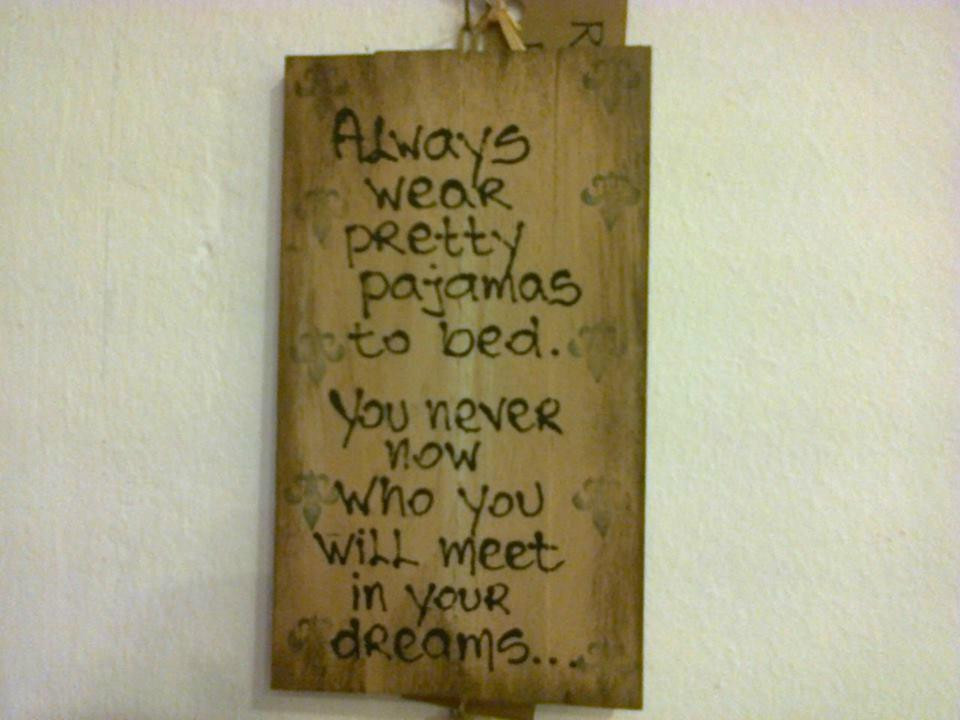 R
Always
wear
pretty
pajamas
to bed.
You never
now
who you
will meet
in your
dreams...